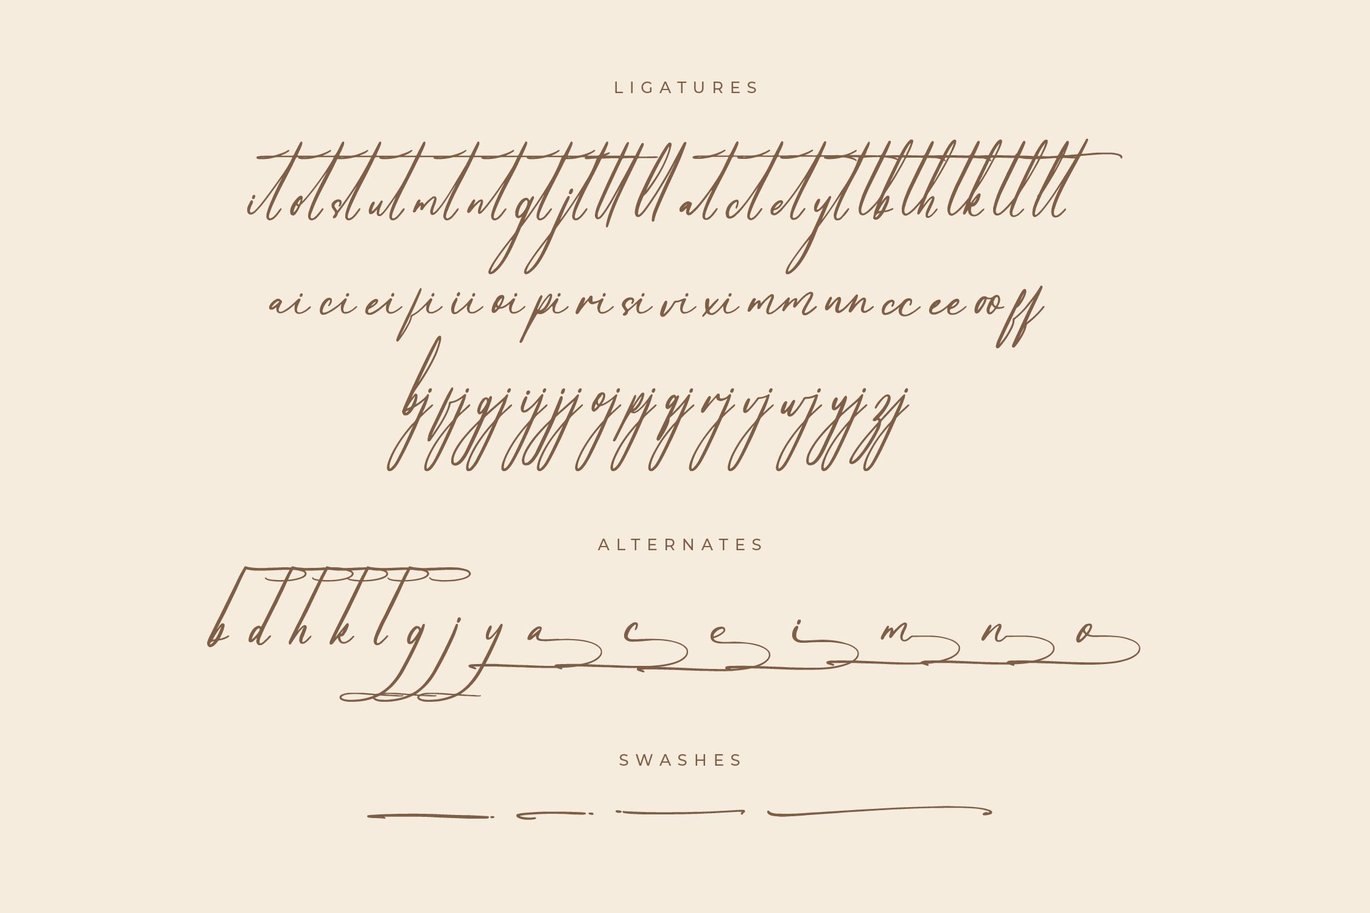 LIGATURES
it ot st ut mt nt gt jt tt ll at ct et yt lb lh lk ll lt
ai ci ei fi ii oi pi ri si vi xi mm nn cc ee oo ff
bj fj gj ij jj oj pj qj rj vj wj yj zj
ALTERNATES
b d h k l g j y a c e i m n o
SWASHES